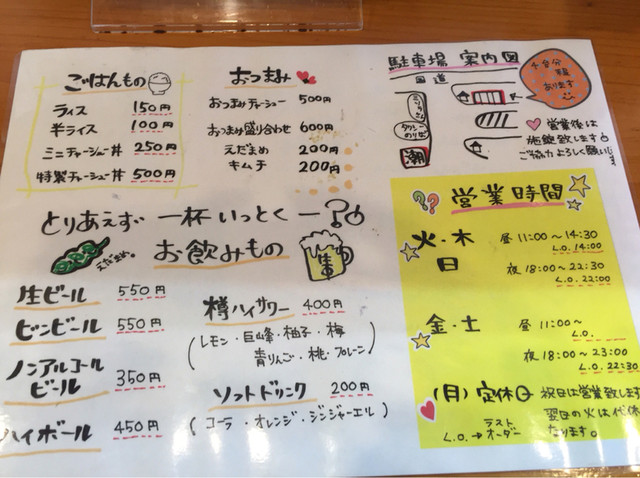 ごはんもの
ライス 150円
半ライス 100円
ミニチャーシュー丼 250円
特製チャーシュー丼 500円
おつまみ
おつまみチャーシュー 500円
おつまみ盛り合わせ 600円
えだまめ 200円
キムチ 200円
駐車場 案内図
国道
タクシーのりば
潮
あります
営業後は
施錠致します
ご協力よろしく願います
とりあえず 一杯いっとくー?
お飲みもの
えだまめ。
生ビール 550円
ビンビール 550円
ノンアルコール
ビール 350円
ハイボール 450円
樽ハイサワー 400円
(レモン・巨峰・柚子・梅
青りんご・桃・プレーン)
ソフトドリンク 200円
(コーラ・オレンジ・ジンジャーエール)
?? 営業時間
火・木
日
昼 11:00〜14:30
L.O. 14:00
夜 18:00〜22:30
L.O. 22:00
金・土
昼 11:00〜
L.O.
夜 18:00〜23:00
L.O. 22:30
(月)定休日
祝日は営業致します
翌日の火は代休
となります。
L.O.→ラストオーダー